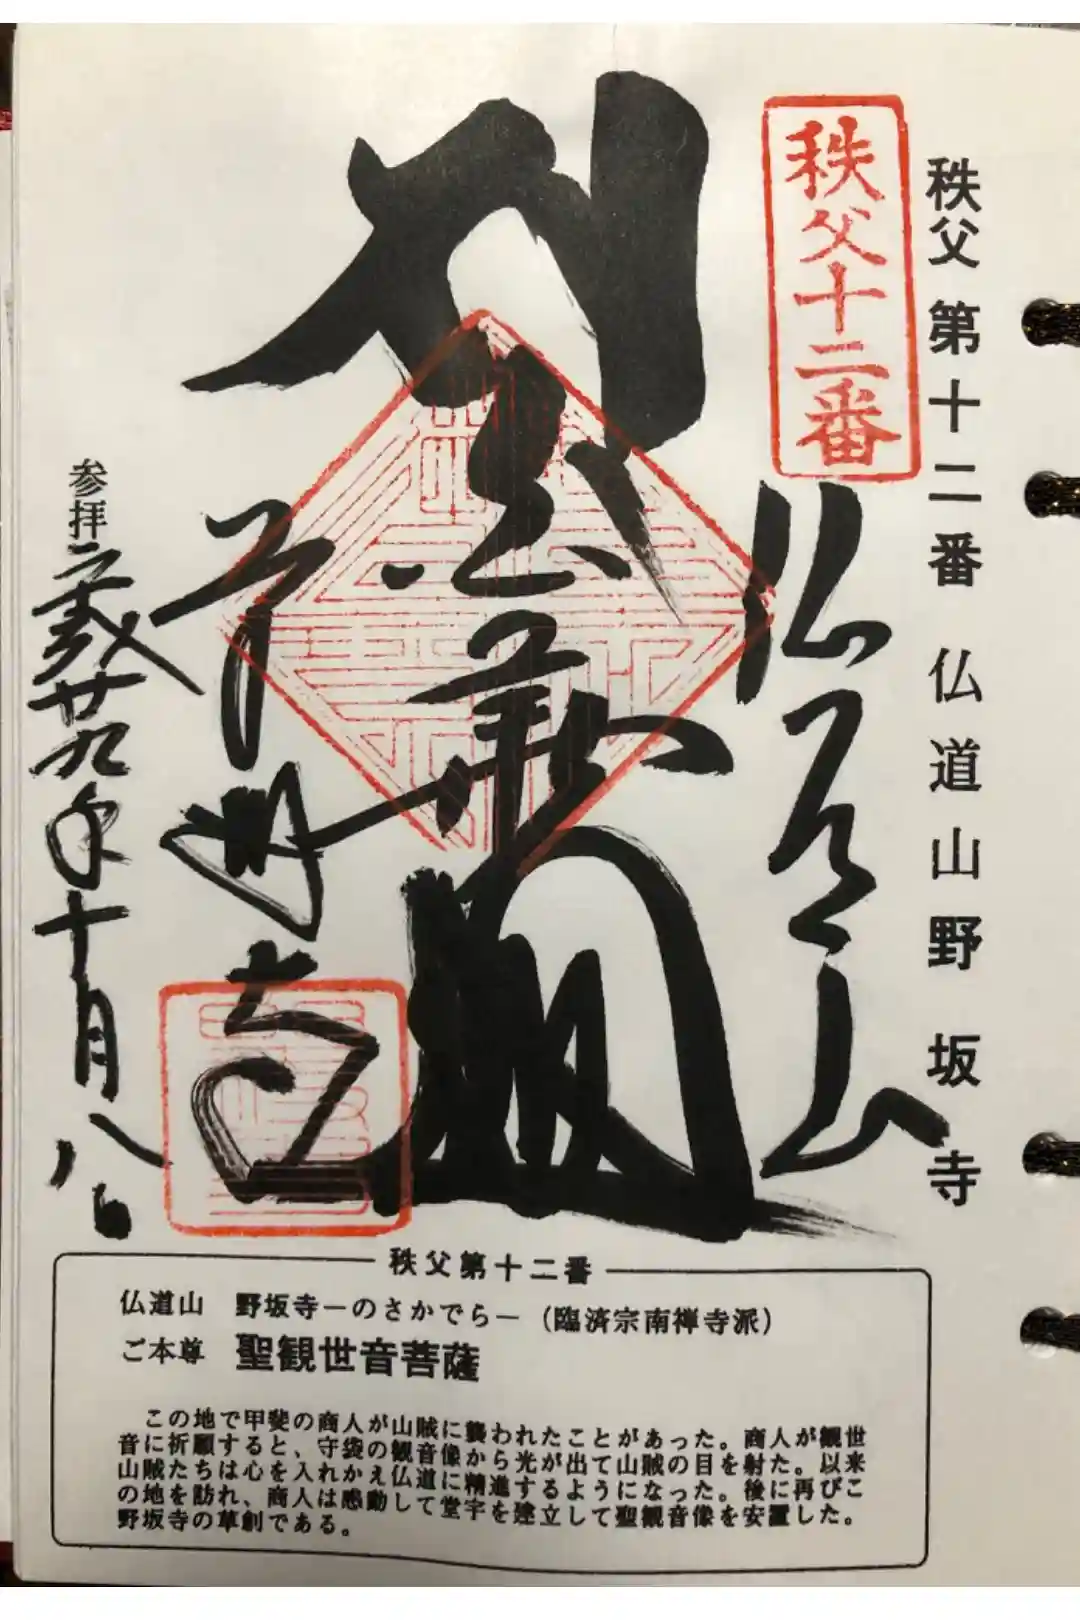 秩父第十二番 仏道山野坂寺
秩父十二番
仏道山
野坂寺
参拝
平成廿九年十月八日
秩父第十二番
仏道山 野坂寺－のさかでら－（臨済宗南禅寺派）
ご本尊 聖観世音菩薩
この地で甲斐の商人が山賊に襲われたことがあった。商人が観世
音に祈願すると、守袋の観音像から光が出て山賊の目を射た。以来
山賊たちは心を入れかえ仏道に精進するようになった。後に再びこ
の地を訪れ、商人は感動して堂宇を建立して聖観音像を安置した。
野坂寺の草創である。